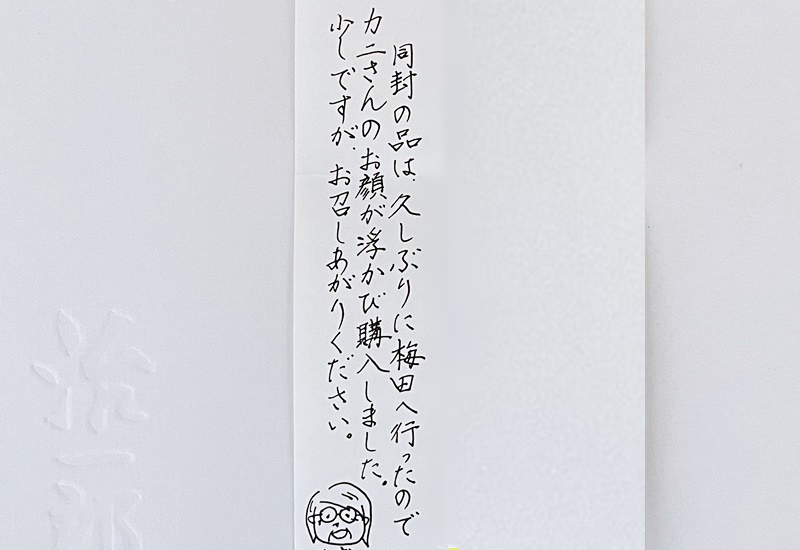 同封の品は、久しぶりに梅田へ行ったので
カニさんのお顔が浮かび購入しました。
少しですが、お召しあがりください。